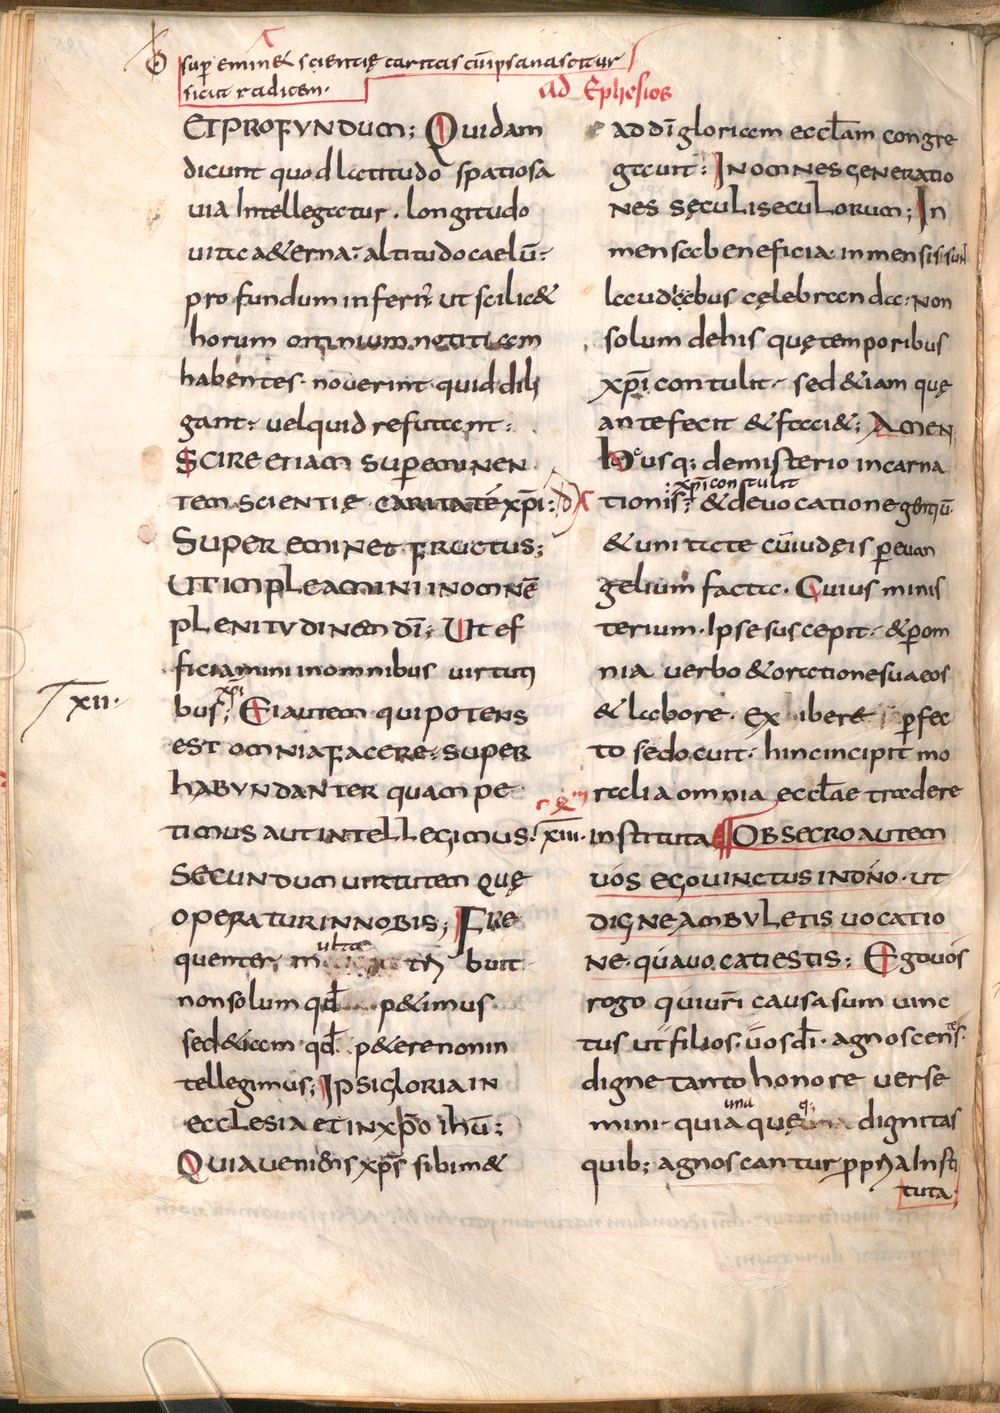 super eminet scientię caritas cū ipsa nascitur
sicut radicem.
ad Ephesios
ET PROFVNDUM; Quidam
dicunt quod latitudo spatiosa
uia Intellegatur. longitudo
uita a&erna: altitudo caelū:
profundum infern̄. ut scilic&
horum omnium notitiam
habentes. nouerint quid dili
gant: uel quid refutant:
SCIRE ETIAM SUPEREMINEN
TEM SCIENTIĘ CARITATĒ XP̄I:
SUPER EMINET FRUCTUS;
UT IMPLEAMINI IN OMNĒ
PLENITVDINEM DĪ; Ut ef
ficiamini in omnibus uirtuti
bus xp̄i; EI AUTEM QUI POTENS
xii.
EST OMNIA FACERE: SUPER
HABVNDANTER QUAM PE
TIMUS AUT INTELLEGIMUS.
SECUNDUM UIRTUTEM QUĘ
OPERATUR IN NOBIS; FRE
quenter, multa buit
non solum qđ p&imus
sed &iam qđ p&ere non in
tellegimus; IPSI GLORIA IN
ECCLESIA ET IN XP̄O IHŪ;
Quia uenidens xp̄s sibim&
ad dī gloriam eccl̄am congre
gauit: IN OMNES GENERATIO
NES SĘCULI SECULORUM; In
mensa beneficia. inmensis sun
laudębus cęlebranda: non
solum de his quę temporibus
xp̄i contulit. sed &iam quę
ante fecit & faci&; AMEN
Hucusq; de misterio incarna
tionis: xp̄i constulit & de uocatione gentiū.
& unitate cū iudęis p euan
gelium facta. Cuius minis
terium. Ipse suscepit. & p om
nia uerbo & oratione sua eos
& labore. Exhibere pfec
to se docuit. hinc incipit mo
ralia omnia eccl̄ae tradere
xiii. instituta OBSECRO AUTEM
UOS EGO UINCTUS IN DN̄O. UT
DIGNE AMBVLETIS UOCATIO
NE. QUA UOCATI ESTIS: Ego uos
rogo qui ur̄i causa sum uinc
tus ut filios. uos dī. agnoscentes.
digne tanto honore uerse
mini. quia quęq; una dignitas
quib; agnoscantur ppria Insti
tuta.